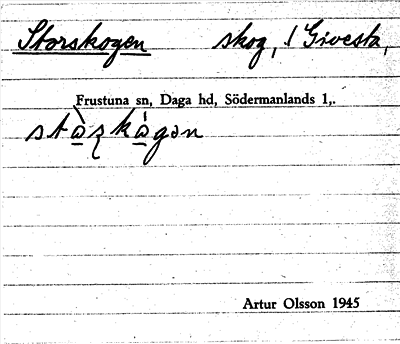 Storskogen skog, 1 Givesta,
Frustuna sn, Daga hd, Södermanlands l,.
stàʐkágən
Artur Olsson 1945